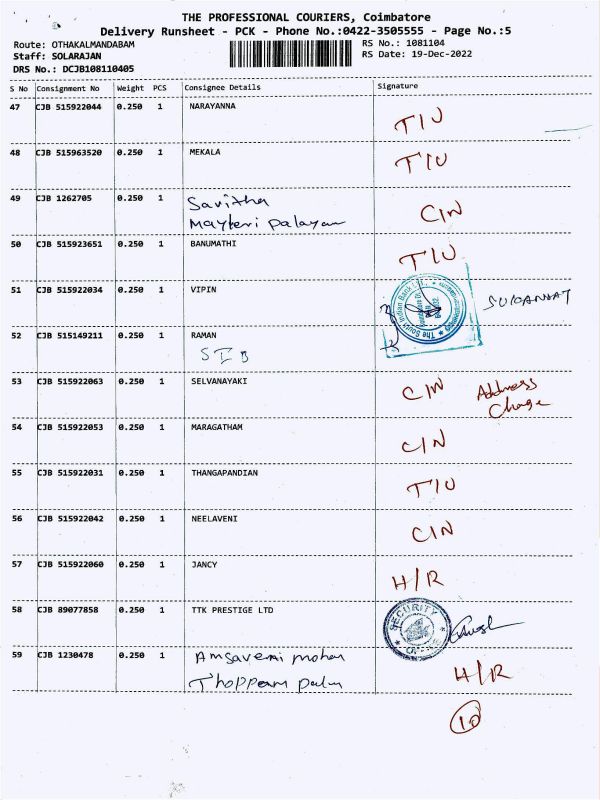 THE PROFESSIONAL COURIERS, Coimbatore
Delivery Runsheet - PCK - Phone No.:0422-3505555 - Page No.:5
Route: OTHAKALMANDABAM RS No.: 1081104
Staff: SOLARAJAN RS Date: 19-Dec-2022
DRS No.: DCJB108110405
S No Consignment No Weight PCS Consignee Details Signature
47 CJB 515922044 0.250 1 NARAYANNA
T/U
48 CJB 515963520 0.250 1 MEKALA
T/U
49 CJB 1262705 0.250 1 Savitha
Mayleri Palayam C/N
50 CJB 515923651 0.250 1 BANUMATHI
T/U
51 CJB 515922034 0.250 1 VIPIN
The South Indian Bank Ltd.
52 CJB 515149211 0.250 1 RAMAN
SIB
53 CJB 515922063 0.250 1 SELVANAYAKI
C/N Address
Chage
54 CJB 515922053 0.250 1 MARAGATHAM
C/N
55 CJB 515922031 0.250 1 THANGAPANDIAN
T/U
56 CJB 515922042 0.250 1 NEELAVENI
C/N
57 CJB 515922060 0.250 1 JANCY
H/R
58 CJB 89077858 0.250 1 TTK PRESTIGE LTD
SECURITY
59 CJB 1230478 0.250 1 Amsaveni mohan
H/R
10